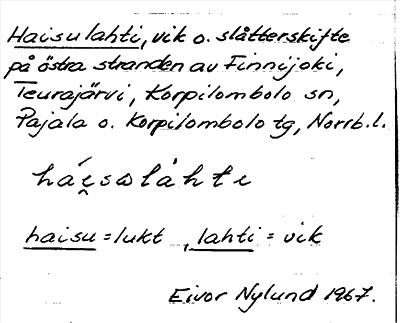 Haisulahti, vik o. slåtterskifte
på östra stranden av Finnijoki,
Teurajärvi, Korpilombolo sn,
Pajala o. Korpilombolo tg, Norrb. l.
há̀i̯sωláhtι
haisu = lukt, lahti = vik
Eivor Nylund 1967.